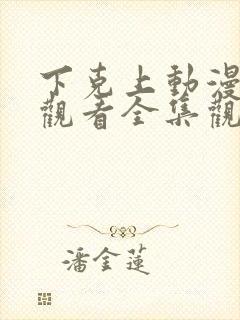 下克上動漫
觀看全集觀
潘金蓮